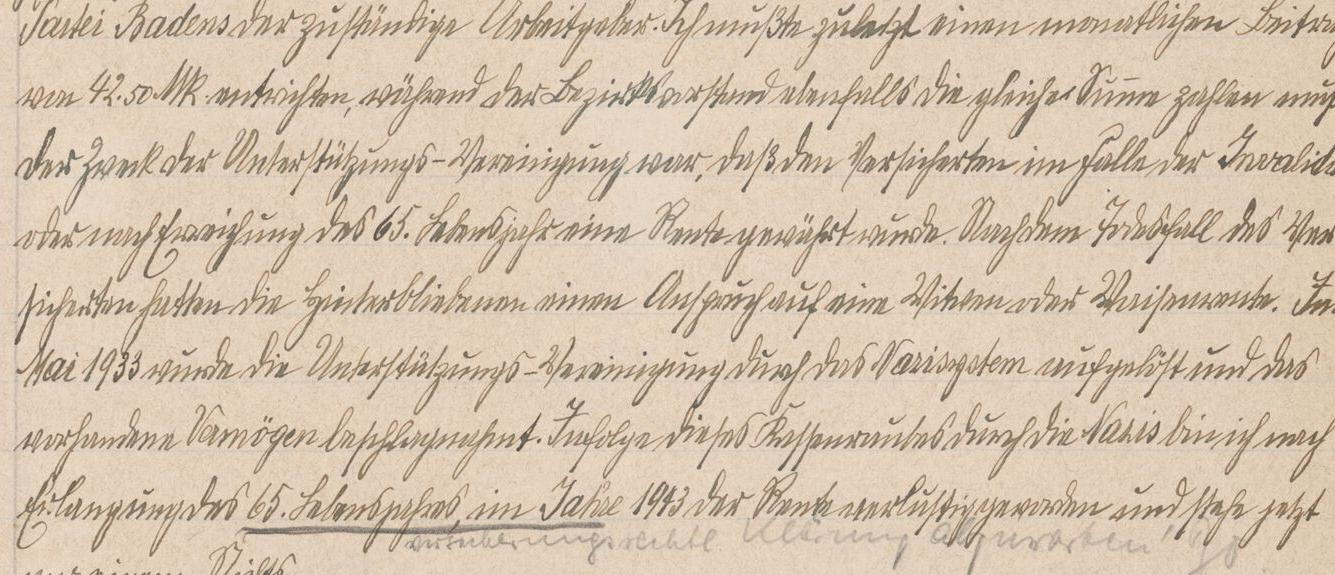 Partei Badens der zuständige Arbeitgeber. Ich mußte zuletzt einen monatlichen Beitrag
von 42.50 Mk. entrichten, während der Bezirksvorstand ebenfalls die gleiche Summe zahlen muß
der Zweck der Unterstützungs-Vereinigung war, daß den Versicherten im Falle der Invalidi
oder nach Erreichung des 65. Lebensjahr eine Rente gewährt wurde. Nach dem Todesfall des Ver
sicherten hatten die Hinterbliebenen einen Anspruch auf eine Witwen oder Waisenrente. Im
Mai 1933 wurde die Unterstützungs-Vereinigung durch das Nazisystem aufgelöst und das
vorhandene Vermögen beschlagnahmt. Infolge dieses Kassenraubes durch die Nazis bin ich nach
Erlangung des 65. Lebensjahres, im Jahre 1943 der Rente verlustig geworden und stehe jetzt
versicherungsrechtl Klärung abzuwarten!
vor einem Nichts.